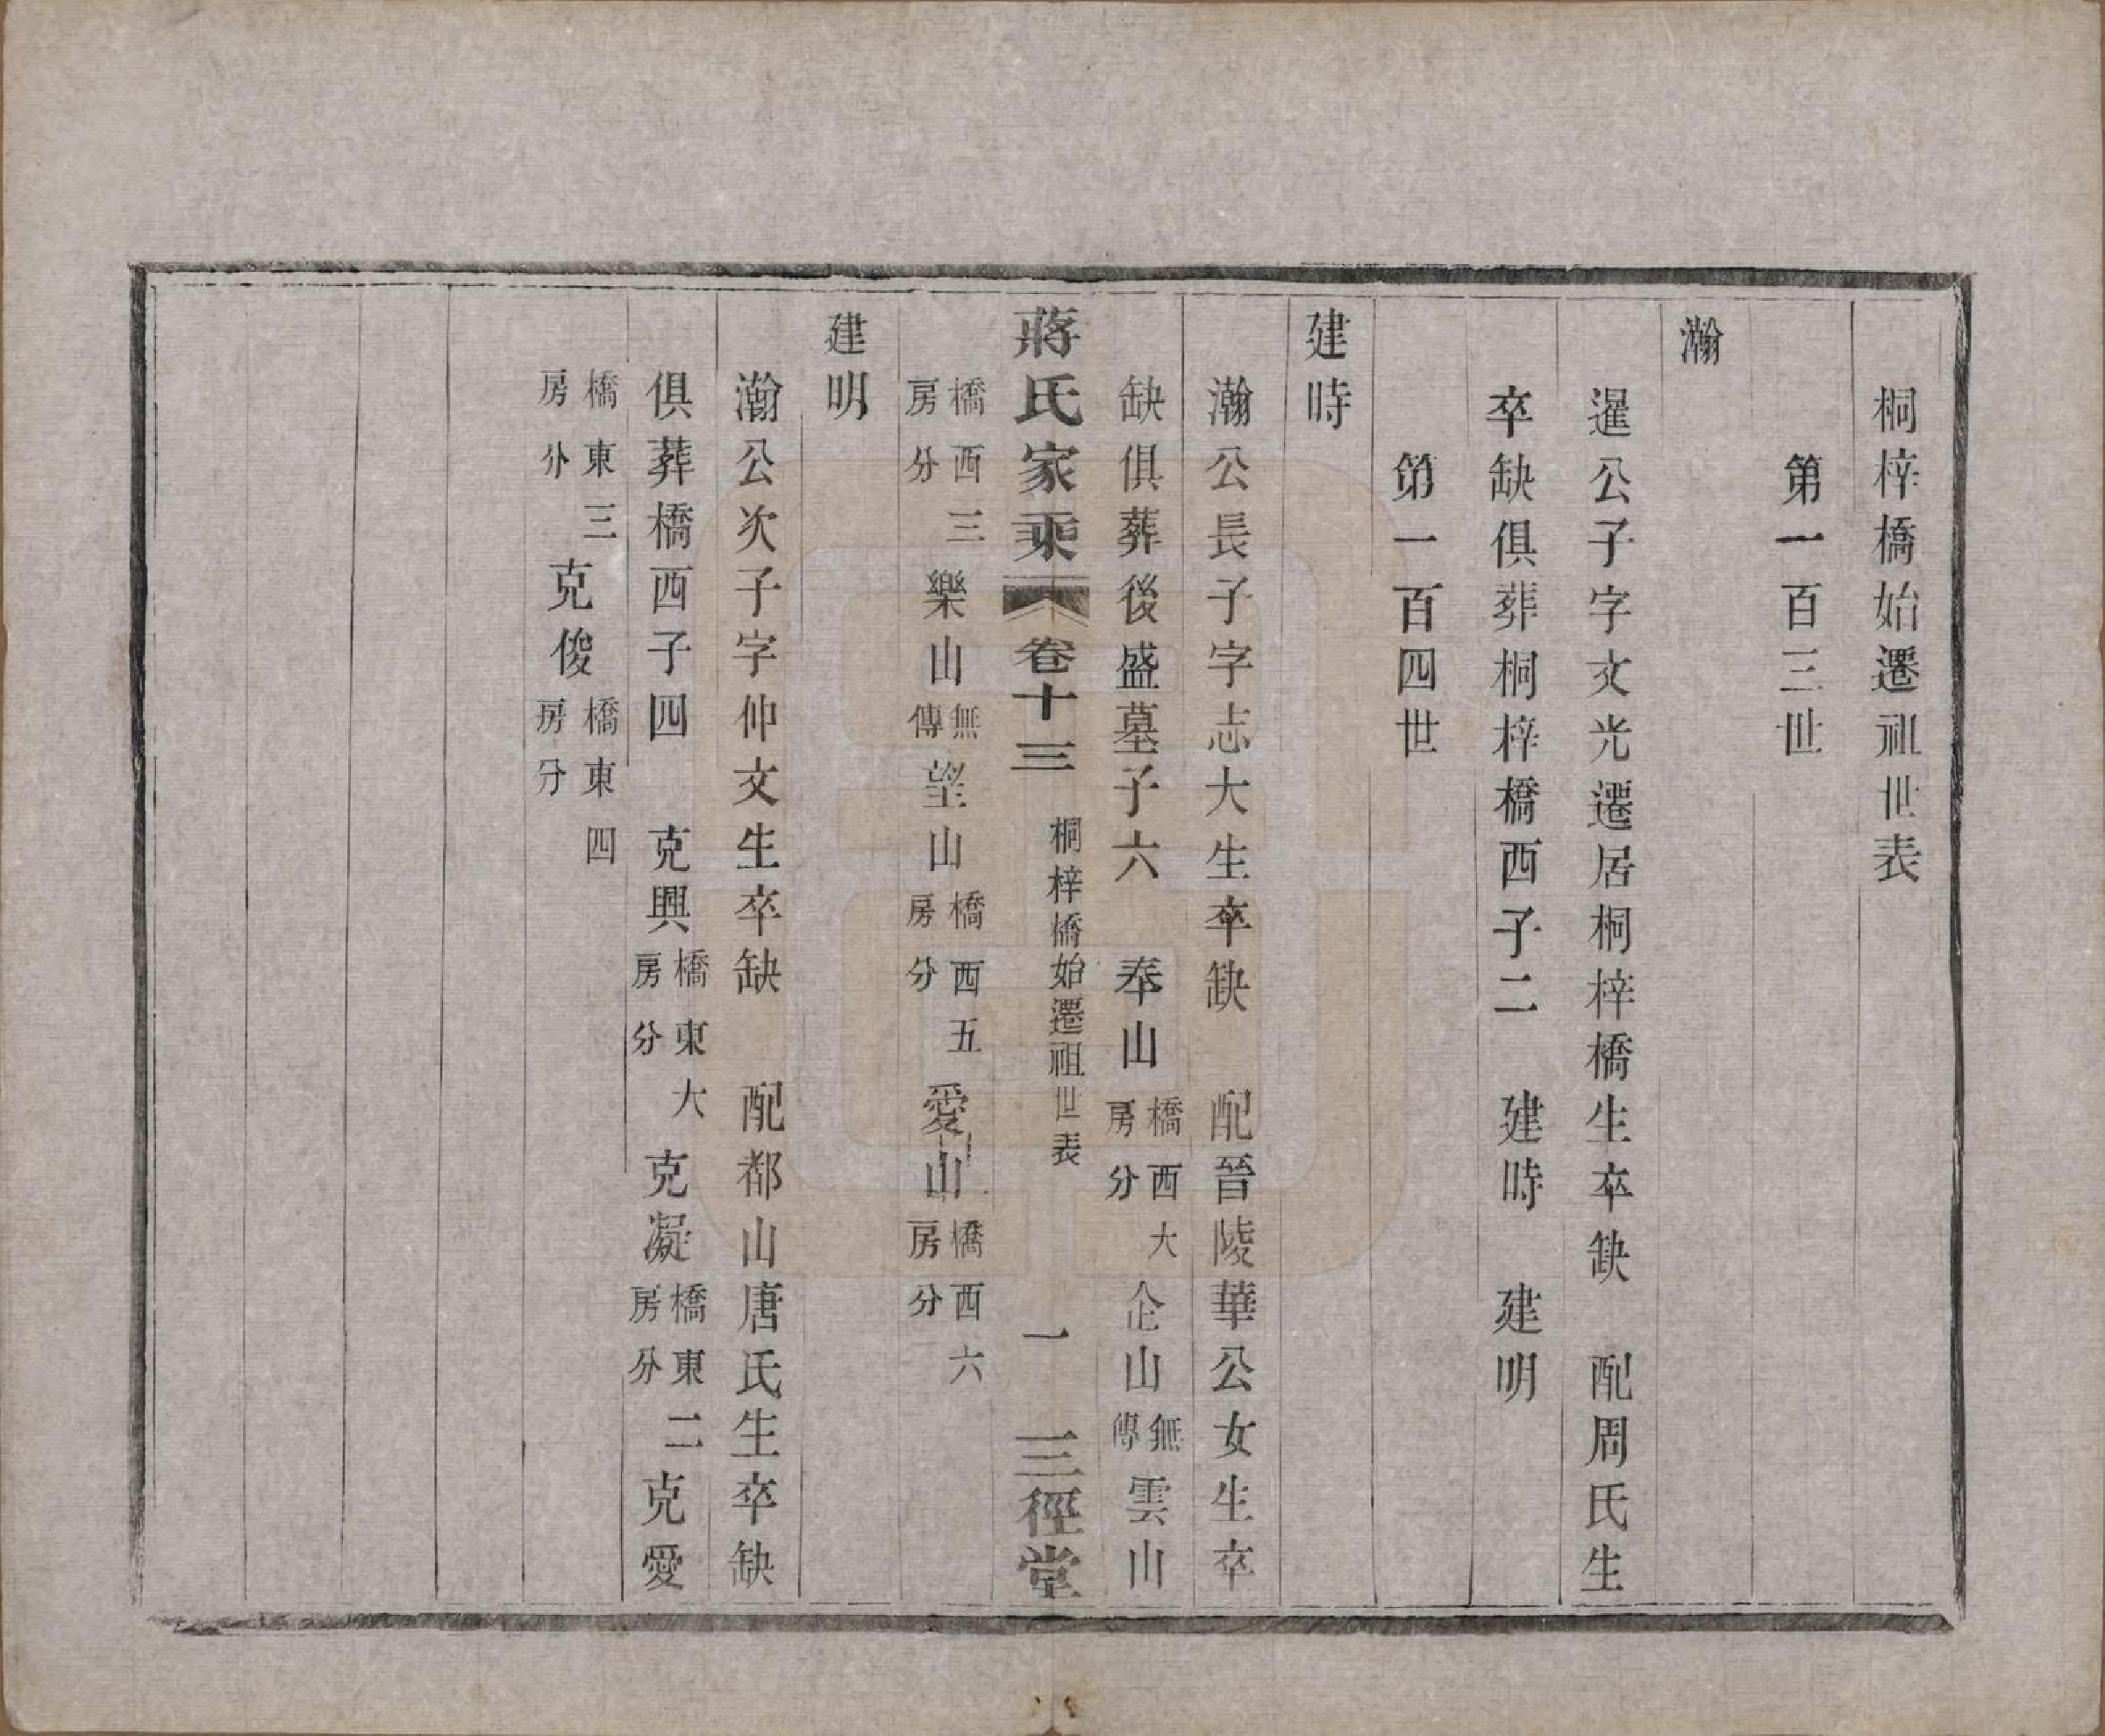 桐梓橋始遷祖世表
第一百三世
瀚
暹公子字文光遷居桐梓橋生卒缺　配周氏生
卒缺俱葬桐梓橋西子二　建時　建明
第一百四世
建時
瀚公長子字志大生卒缺　配晉陵華公女生卒
缺俱葬後盛墓子六　奉山橋西大房分企山無傳雲山
橋西三房分樂山無傳望山橋西五房分愛山橋西六房分
蔣氏家乘　卷十三　桐梓橋始遷祖世表　一　三徑堂
建明
瀚公次子字仲文生卒缺　配都山唐氏生卒缺
俱葬橋西子四　克興橋東大房分克凝橋東二房分克愛
橋東三房分克俊橋東四房分